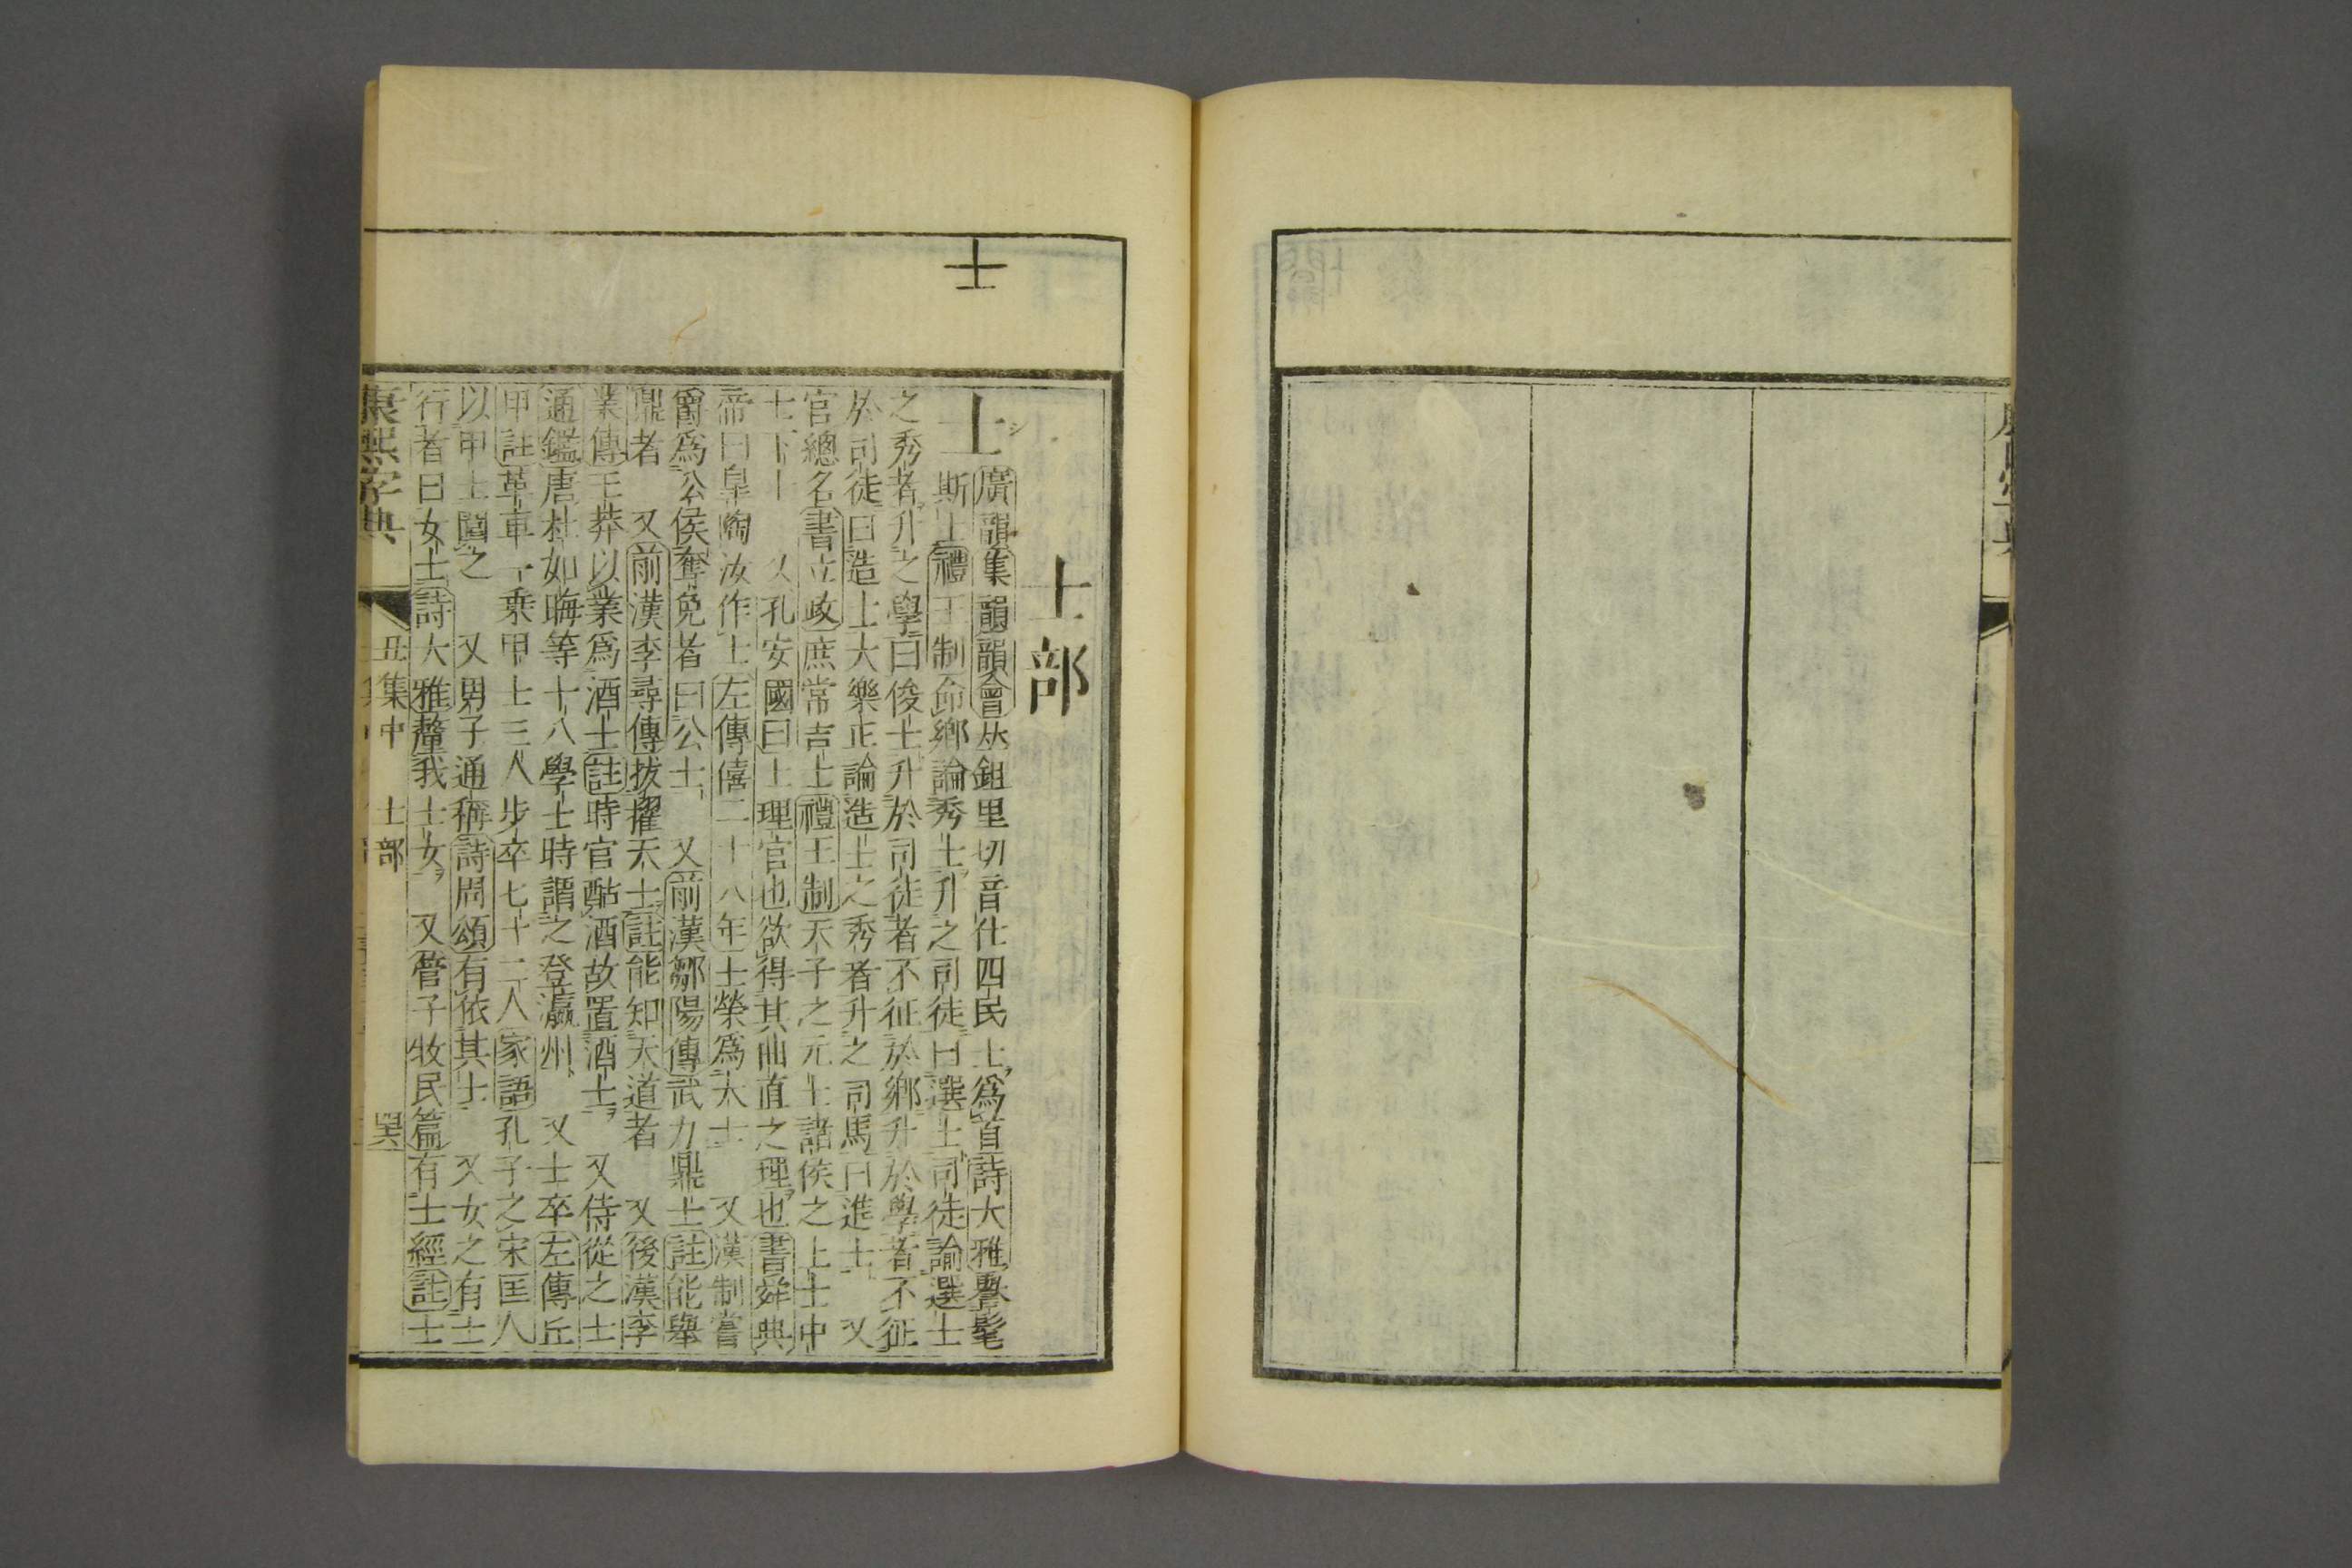 士
士部
士シ
廣韻集韻韻會𠀤鉏里切音仕四民士爲首詩大雅譽髦
斯士禮王制命鄉論秀士升之司徒曰選士司徒論選士
之秀者升之學曰俊士升於司徒者不征於鄉升於學者不征
於司徒曰造士大樂正論造士之秀者升之司馬曰進士 又
官總名書立政庶常吉士禮王制天子之元士諸侯之上士中
士下士 又孔安國曰士理官也欲得其曲直之理也書舜典
帝曰皐陶汝作士左傳僖二十八年士榮爲大士 又漢制嘗
爵爲公侯奪免者曰公士 又前漢鄒陽傳武力鼎士註能舉
鼎者 又前漢李尋傳拔擢天士註能知天道者 又後漢李
業傳王莽以業爲酒士註時官酤酒故置酒士 又侍從之士
通鑑唐杜如晦等十八學士時謂之登瀛州 又士卒左傳丘
甲註革車一乘甲士三人步卒七十二人家語孔子之宋匡人
以甲士圍之 又男子通稱詩周頌有依其士 又女之有士
行者曰女士詩大雅釐我士女 又管子牧民篇有士經註士
康熙字典 丑集中 士部